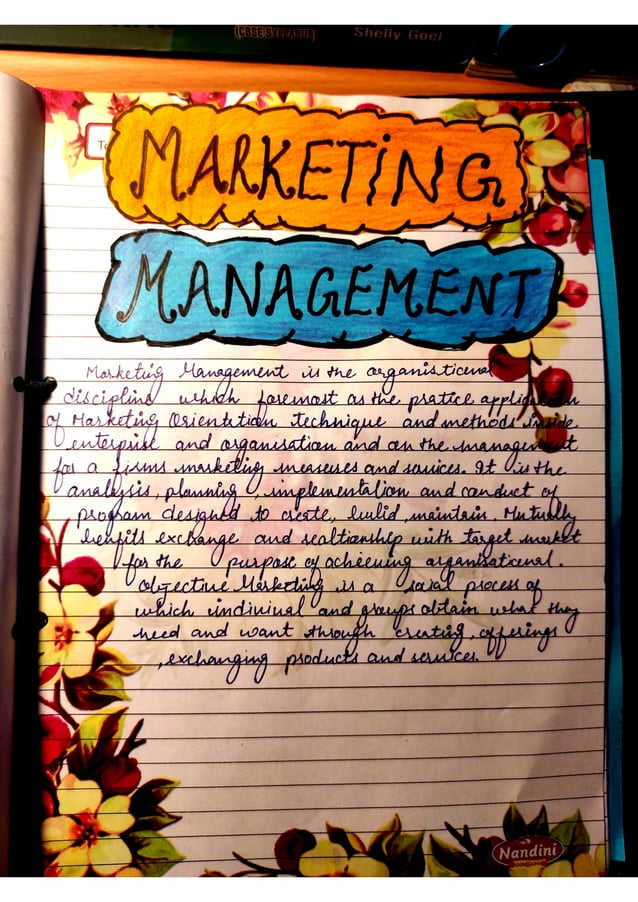 (CBSE SYLLABUS) Shelly Goel
To
MARKETING
MANAGEMENT
Marketing Management is the organisticenal
discipline which foremost as the pratice application
of Marketing Orientation technique and methods inside
enterprise and organisation and on the management
for a firms marketing measures and sauices. It is the
analysis, planning, implementation and conduct of
program designed to create, build, maintain. Mutually
benefits exchange and realtionship with target market
for the purpose of achieening organisational.
Objective Marketing is a soial process of
which indiviual and groups obtain what they
need and want through creating, offerings
,exchanging products and services.
Nandini